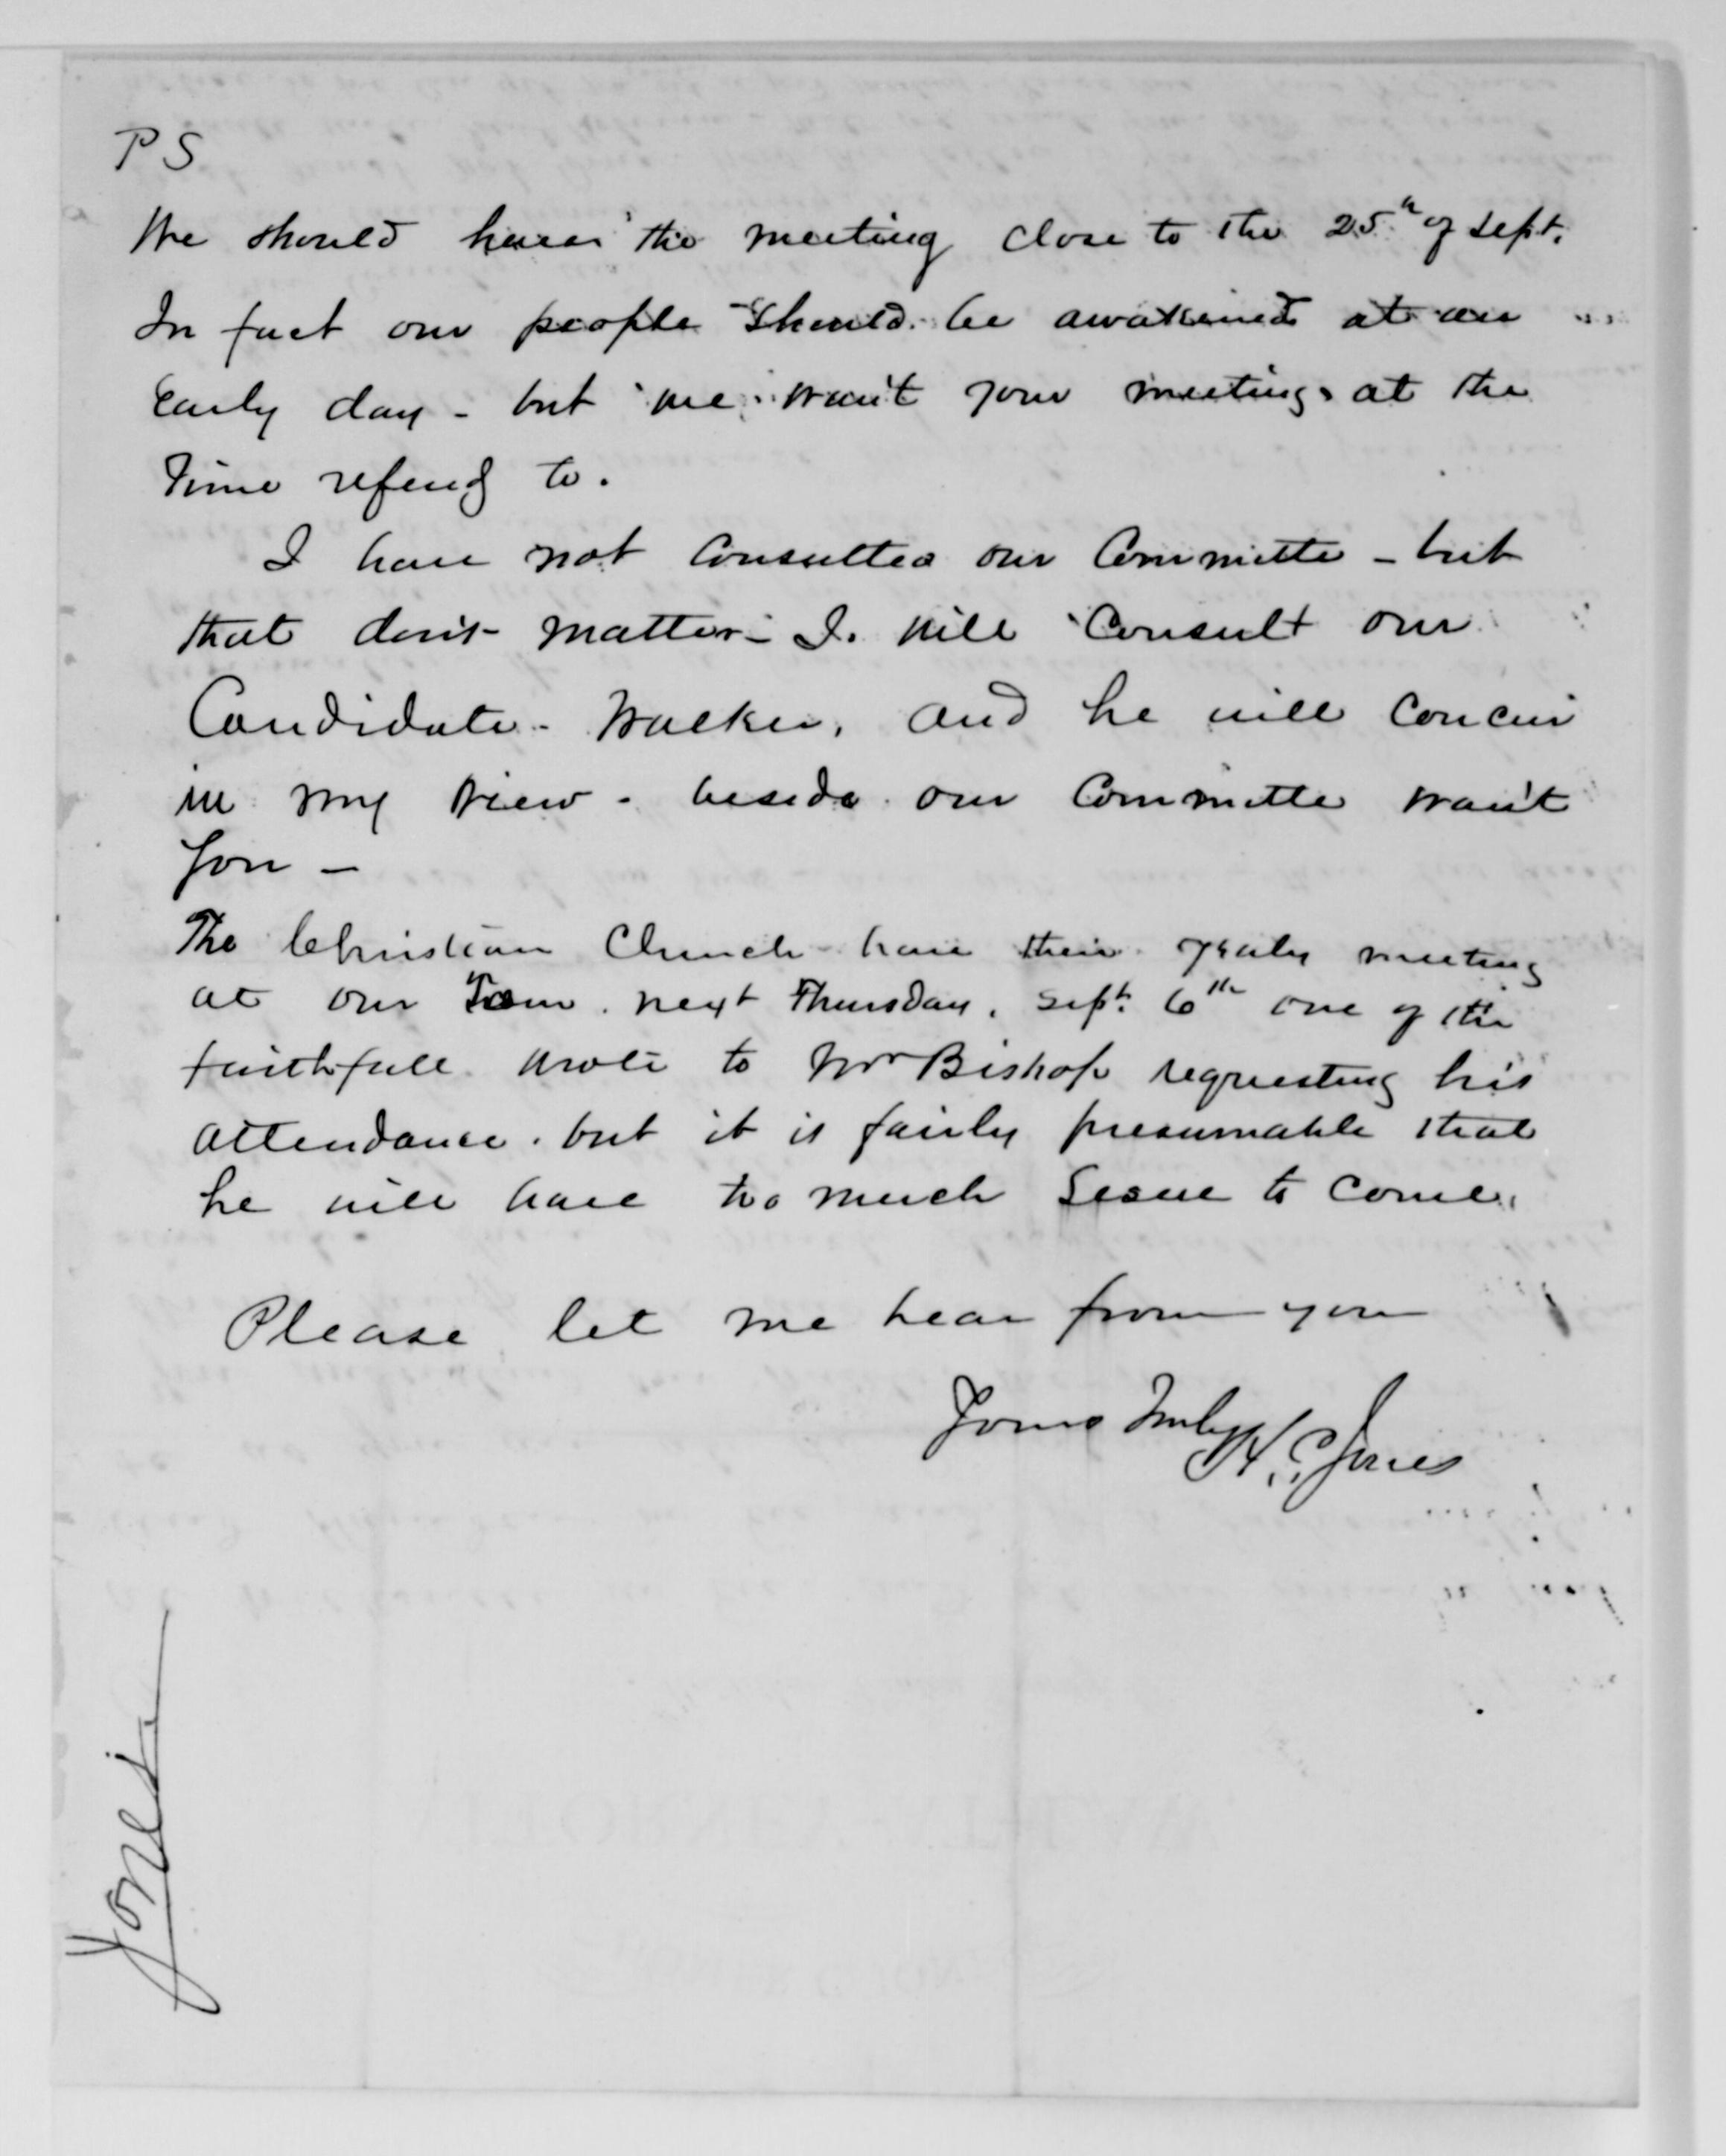 P S
We should have the meeting close to the 25th of Sept.
In fact our people should be awakened at an
early day - but we want your meeting at the
time referd to.
I have not consulted our Committe - but
that dont matter - I will consult our
Candidate - Walker, and he will concur
in my view - beside our Committe want
you -
The Christian Church have their yealy meeting
at our Town next Thursday, Sept. 6th one of the
faithfull wrote to Mr Bishop requesting his
attendance. but it is fairly presumable that
he will have too much to come.
Please let me hear from you
Yours Truly
H. C. Jones
Jones